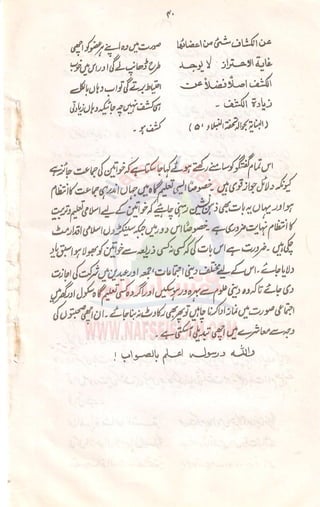 ۴۰
عن انکشاف شئ من اعضائها
غاية الاحتراز لا يوجد
الكشف اصلاً فضلاً عن
زيادة الكشف ـ
(البناية بحوالہ تحفۃ النبلاء ۵۰)
صورت میں وہ اپنے ہر عضو کو اچھی
طرح ڈھانپ لے گی اور اس میں خوب
احتیاط برتے گی تو اب وہاں بالکل
ہی کشف نہیں چہ جائیکہ وہاں زیادتی
کشف ہو۔
اس تمام گفتگو کو سامنے رکھتے ہوئے کہا جا سکتا ہے کہ خواتین کی جماعت جائز ہے
کیونکہ دلائل جواز قوی ہیں۔ خصوصاً ایسی تعلیم گاہ میں جہاں اندر ہی جماعت کا انتظام
ہو اور یہاں یہ بات بھی ذہن نشین رہنی چاہیئے کہ خواتین کے لیے اسلامی تعلیم و تربیت
کا انتظام نہایت ضروری ہے۔ خصوصاً اس دور میں جبکہ سینکڑوں اسلامی اقدار مٹ
چکی ہیں۔ ضرورت ہے اس بات کی کہ کسی نہ کسی ذریعہ سے خواتین کو بھولا ہوا سبق یاد
دلایا جائے۔ اس کے لیے مختلف دینی اجتماعات جمعہ اور عیدین میں شرکت کی اجازت
دی جائے تاکہ وہ دینی علوم سے بہرہ ور ہو سکیں اور اگر وہ کسی تعلیم گاہ سکول اور گھر میں
اجتماعی صورت میں نماز ادا کرنا چاہیں تو پھر بھی رکاوٹ نہ بنا جائے۔ ان اچھی صحبتوں کی
وجہ سے معاشرے میں اچھی تبدیلی آ سکتی ہے۔
واللہ ورسولہ اعلم بالصواب!
WWW.NAFSEISLAM.COM